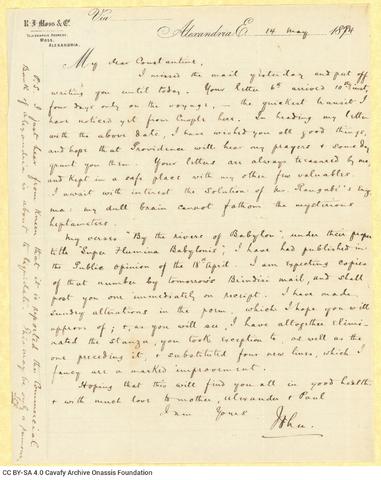 R J Moss & Co.
TELEGRAPHIC ADDRESS,
MOSS,
ALEXANDRIA.
Via
Alexandria E. 14 May 1884
My dear Constantine,
I missed the mail yesterday and put off
writing you until today. Your letter 6th arrived 10th inst,
four days only on the voyage, — the quickest transit I
have noticed yet from Consple here. In heading my letter
with the above date, I have wished you all good things,
and hope that Providence will hear my prayers & some day
grant you them. Your letters are always treasured by me,
and kept in a safe place with my other few valuables.
I await with interest the solution of Mr. Rangabi's enig-
ma: my dull brain cannot fathom the mysterious
heptameters.
My verses "By the rivers of Babylon", under their proper
title "Super Flumina Babylonis", I have had published in
the Public opinion of the 18th April. I am expecting copies
of that number by tomorrow's Brindisi mail, and shall
post you one immediately on receipt. I have made
sundry alterations in the poem, which I hope you will
approve of; &, as you will see, I have altogether elimi-
nated the stanza, you took exception to, as well as the
one preceding it, & substituted four new lines, which I
fancy are a marked improvement.
Hoping that this will find you all in good health
& with much love to mother, Alexander & Paul
I am Yours
John
P.S. I just hear from that it is reported the Commercial
Bank of Alexandria is about to liquidate. This may be only a rumour.
CC BY-SA 4.0 Cavafy Archive Onassis Foundation